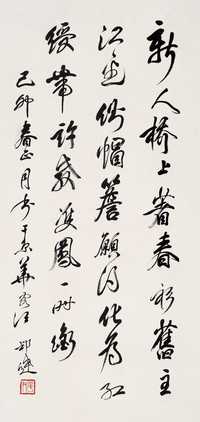 新人橋上著春衫舊主
江邊側帽簷願得化為紅
綬帶許教雙鳳一時銜
己卯春正月書於京華